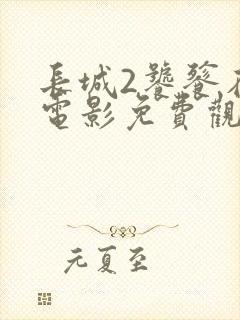 長城2饕餮
電影免費觀
元夏至